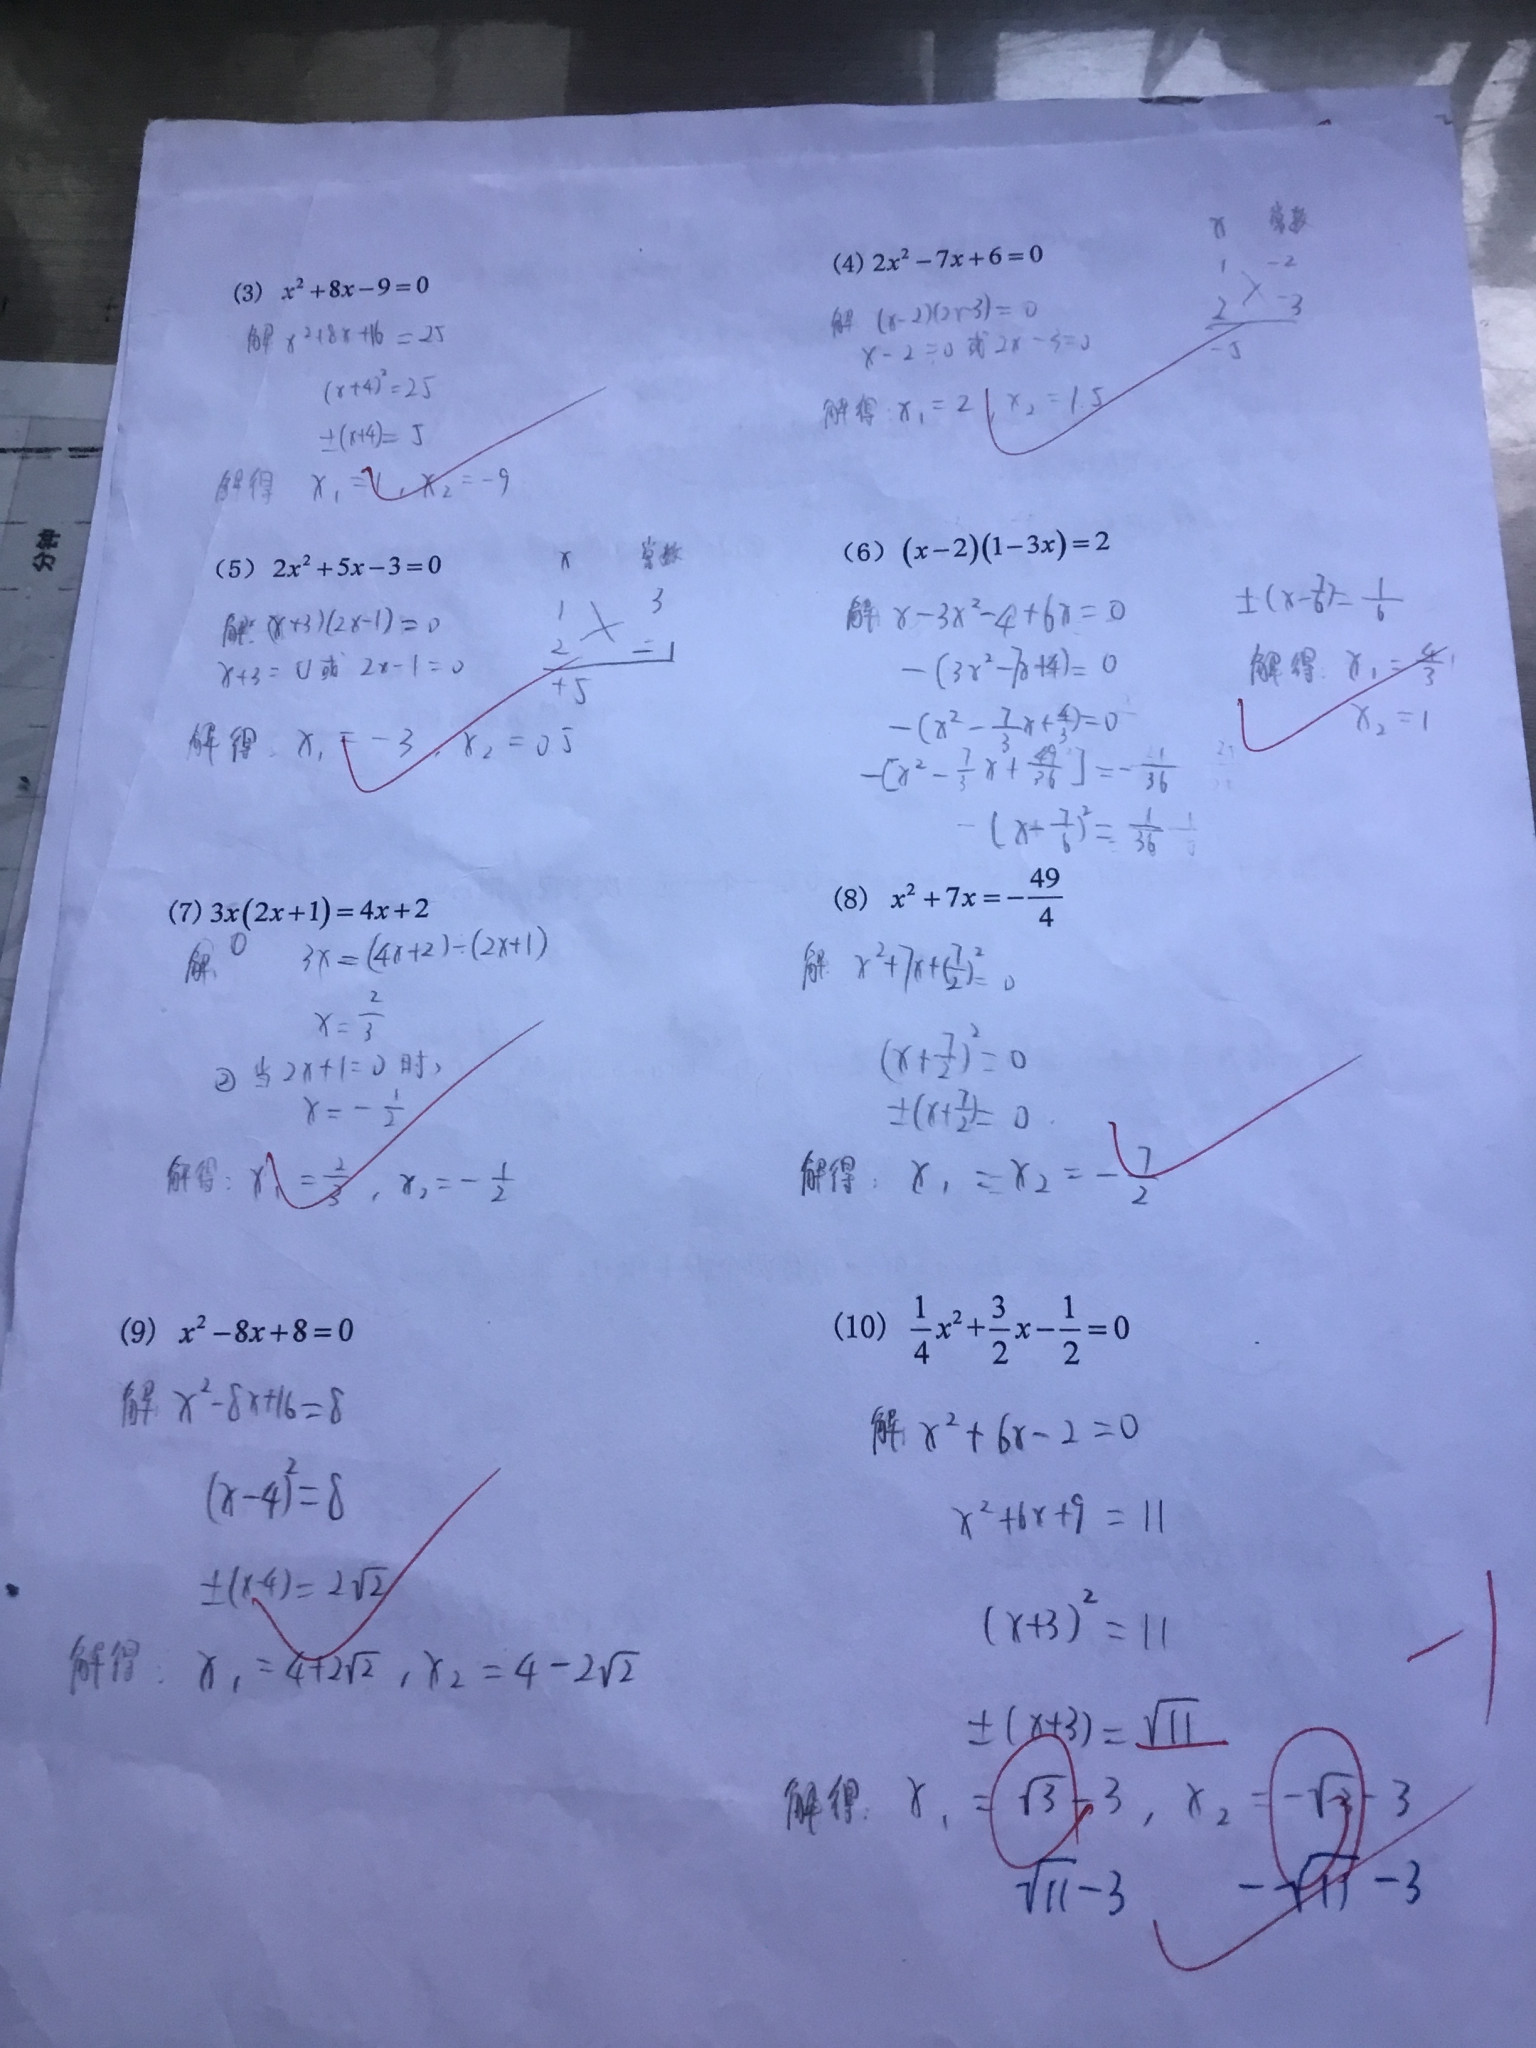 (3) x²+8x−9=0
解 x²+8x+16=25
(x+4)²=25
±(x+4)=5
解得 x₁=1, x₂=−9
(4) 2x²−7x+6=0
解 (x−2)(2x−3)=0
x−2=0或2x−3=0
解得:x₁=2, x₂=1.5
x 常数
1 −2
2 −3
−5
(5) 2x²+5x−3=0
解:(x+3)(2x−1)=0
x+3=0或 2x−1=0
解得:x₁=−3, x₂=05
x 常数
1 3
2 −1
+5
(6) (x−2)(1−3x)=2
解 x−3x²−4+6x=0
−(3x²−7x+4)=0
−(x²−7/3x+4/3)=0
−[x²−7/3x+49/36]=−1/36
−(x+7/6)²=1/36
±(x−7/6)=1/6
解得:x₁=4/3
x₂=1
(7) 3x(2x+1)=4x+2
解 ① 3x=(4x+2)÷(2x+1)
x=2/3
② 当2x+1=0时,
x=−1/2
解得:x₁=2/3, x₂=−1/2
(8) x²+7x=−49/4
解 x²+7x+(7/2)²=0
(x+7/2)²=0
±(x+7/2)=0
解得:x₁=x₂=−7/2
(9) x²−8x+8=0
解 x²−8x+16=8
(x−4)²=8
±(x−4)=2√2
解得:x₁=4+2√2, x₂=4−2√2
(10) 1/4x²+3/2x−1/2=0
解 x²+6x−2=0
x²+6x+9=11
(x+3)²=11
−1
±(x+3)=√11
解得:x₁=√3−3, x₂=−√3−3
√11−3 −√11−3